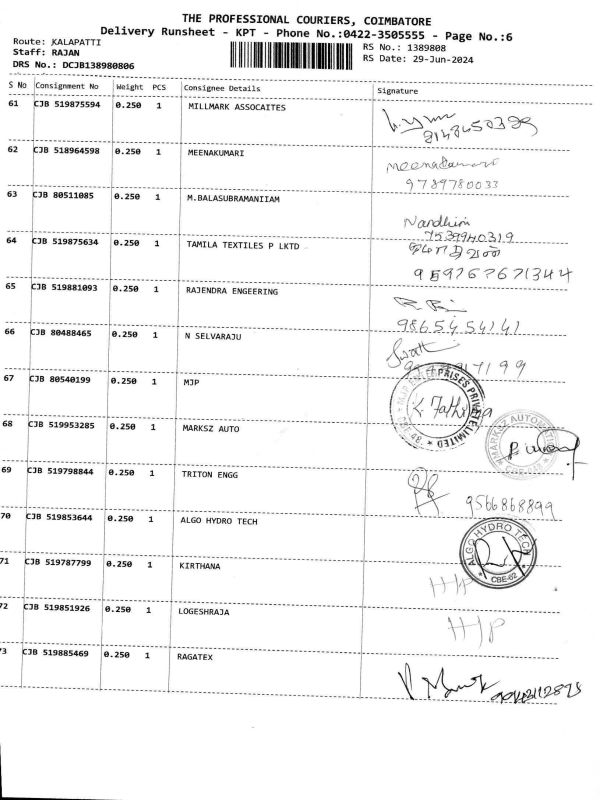 THE PROFESSIONAL COURIERS, COIMBATORE
Delivery Runsheet - KPT - Phone No.:0422-3505555 - Page No.:6
Route: KALAPATTI
Staff: RAJAN
DRS No.: DCJB138980806
RS No.: 1389808
RS Date: 29-Jun-2024
S No Consignment No Weight PCS Consignee Details Signature
61 CJB 519875594 0.250 1 MILLMARK ASSOCAITES
62 CJB 518964598 0.250 1 MEENAKUMARI Meenakumari
9789780033
63 CJB 80511085 0.250 1 M.BALASUBRAMANIIAM Nandhini
7539940319
64 CJB 519875634 0.250 1 TAMILA TEXTILES P LKTD
65 CJB 519881093 0.250 1 RAJENDRA ENGEERING
9865454141
66 CJB 80488465 0.250 1 N SELVARAJU
67 CJB 80540199 0.250 1 MJP
MJP ENTERPRISES PRIVATE LIMITED
68 CJB 519953285 0.250 1 MARKSZ AUTO
MARKSZ AUTOMATION
69 CJB 519798844 0.250 1 TRITON ENGG
9566868899
70 CJB 519853644 0.250 1 ALGO HYDRO TECH
ALGO HYDRO TECH
CBE-62
71 CJB 519787799 0.250 1 KIRTHANA H/P
72 CJB 519851926 0.250 1 LOGESHRAJA H/P
73 CJB 519885469 0.250 1 RAGATEX